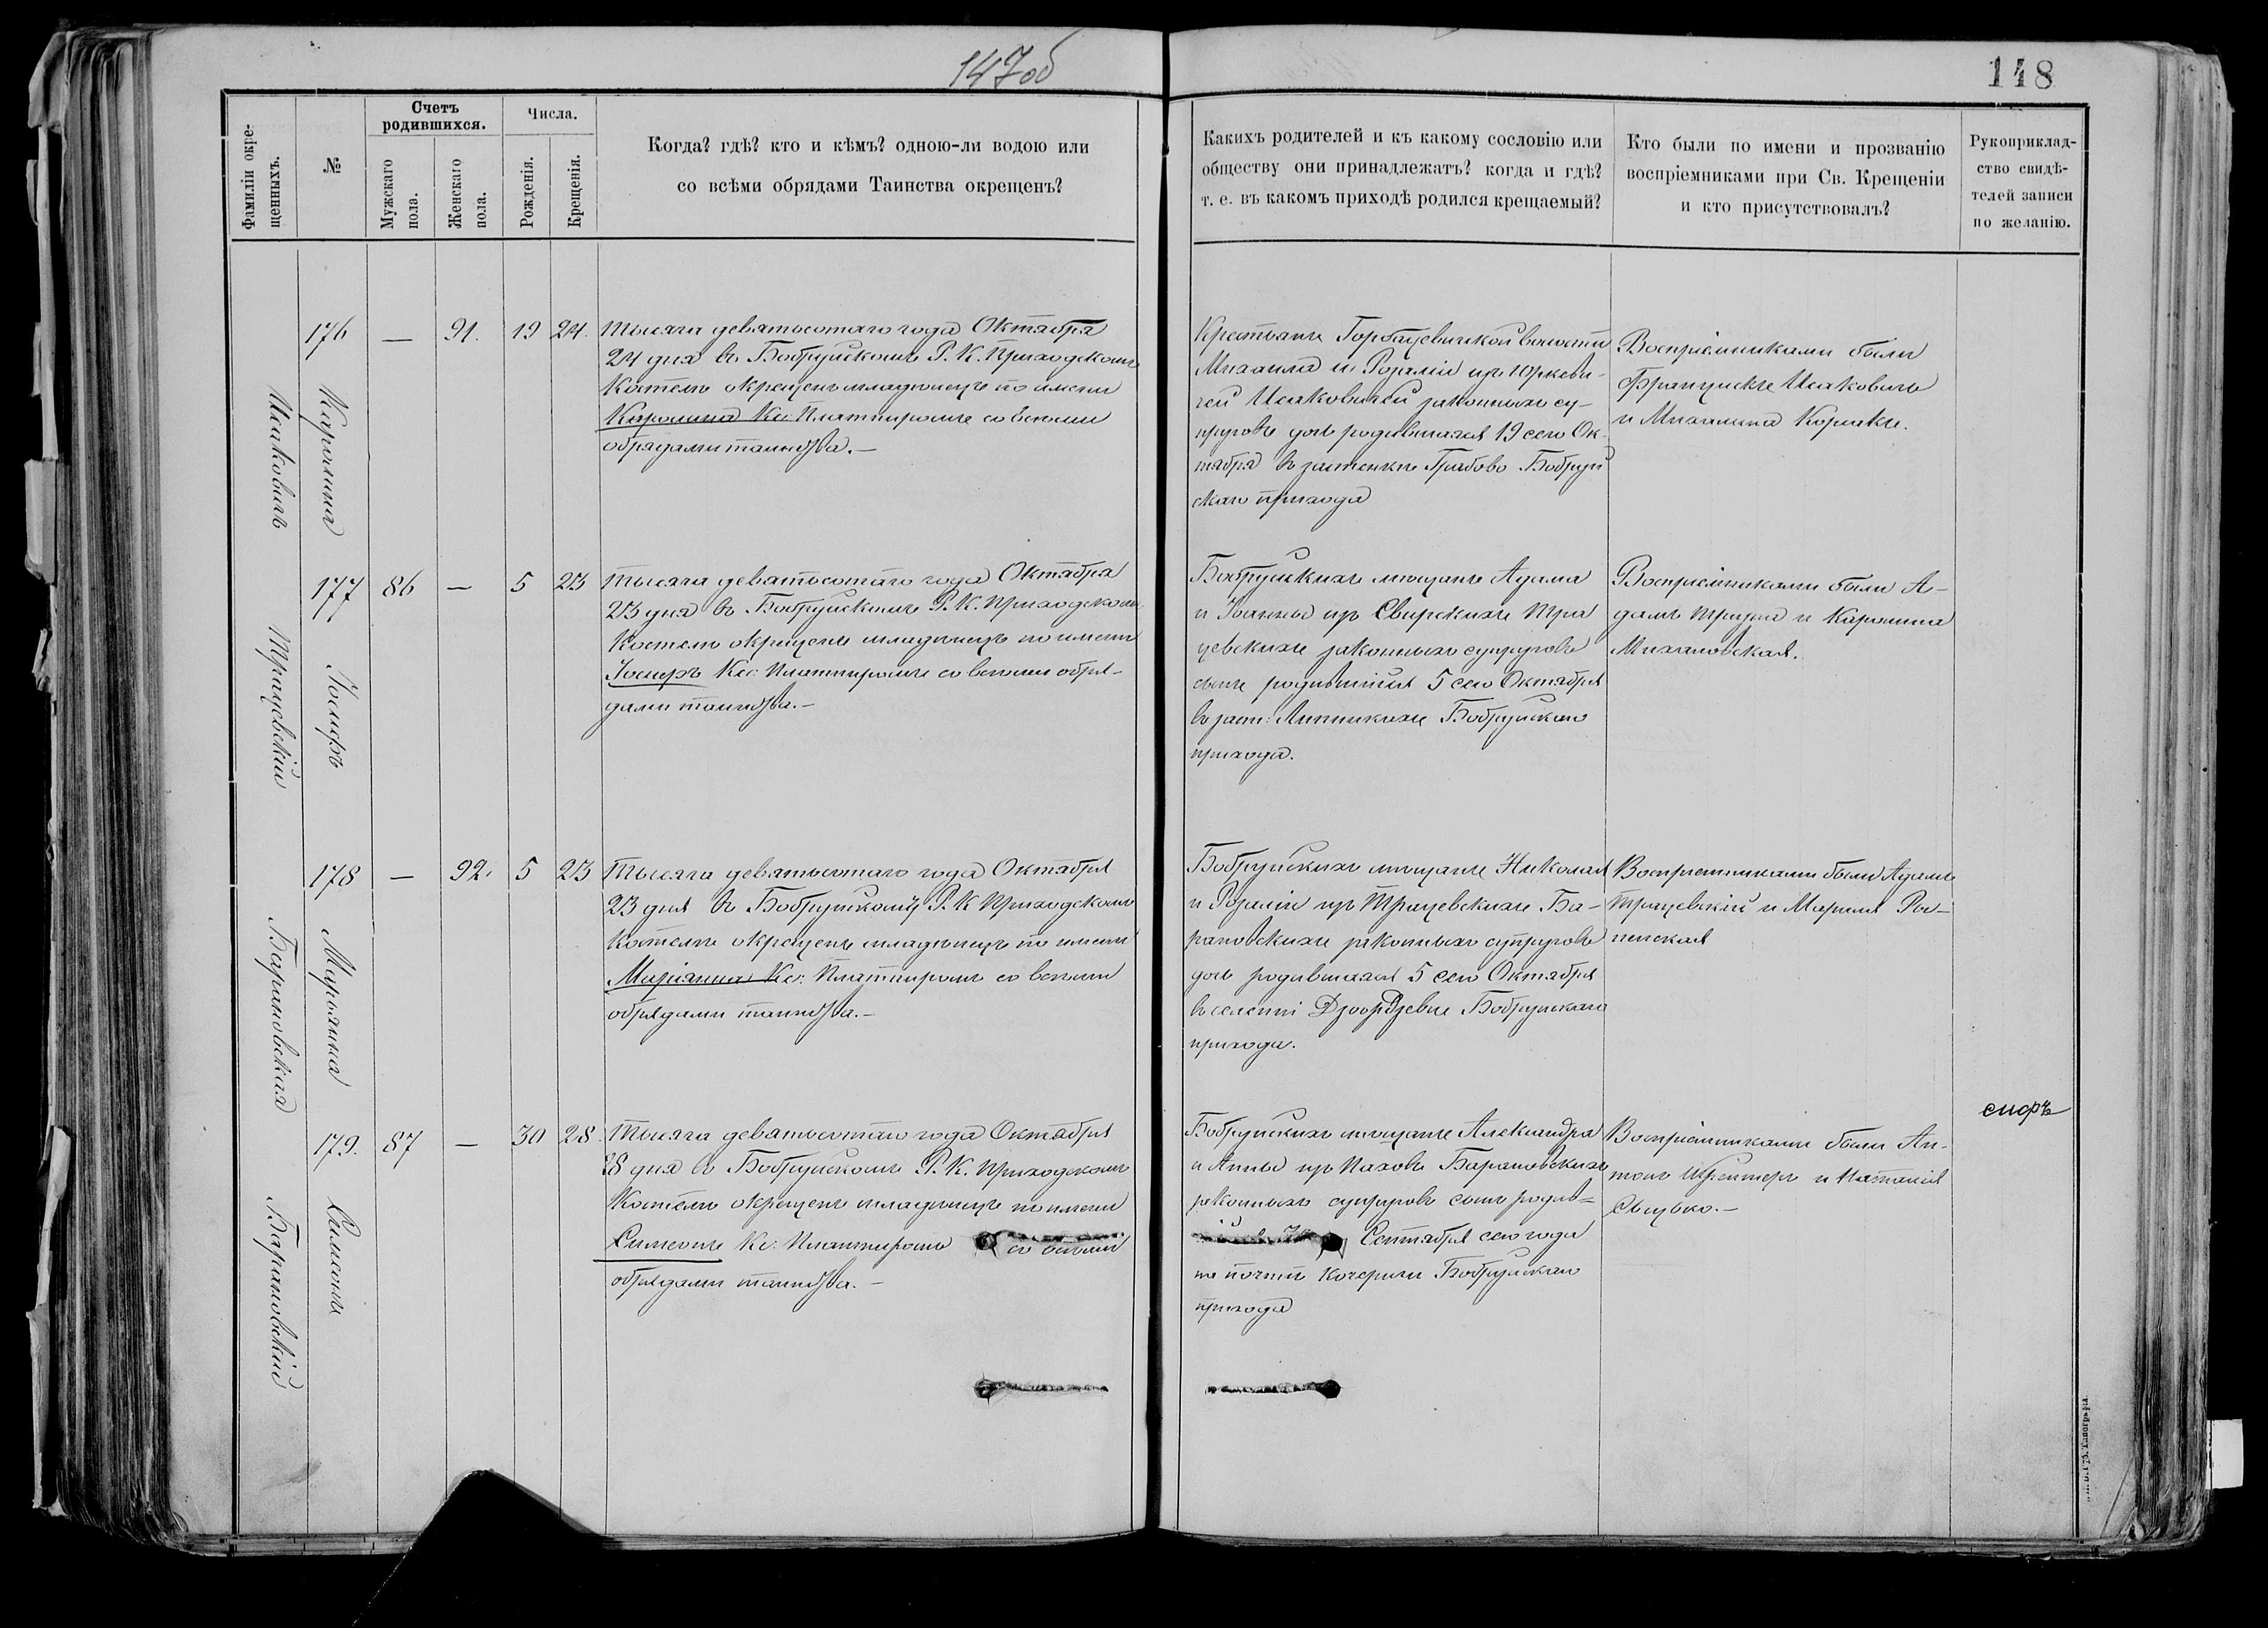 147об
148
Фамиліи окре-
щенныхъ.
№
Счетъ
родившихся.
Мужскаго
пола.
Женскаго
пола.
Числа.
Рожденія.
Крещенія.
Когда? гдѣ? кто и кѣмъ? одною-ли водою или
со всѣми обрядами Таинства окрещенъ?
Какихъ родителей и къ какому сословію или
обществу они принадлежатъ? когда и гдѣ?
т. е. въ какомъ приходѣ родился крещаемый?
Кто были по имени и прозванію
воспріемниками при Св. Крещеніи
и кто присутствовалъ?
Рукоприклад-
ство свидѣ-
телей записи
по желанію.
Исаковичъ
Каролина
176 — 91. 19 24.
Тысяча девятьсотаго года Октября
24 дня въ Бобруйскомъ Р. К. Приходскомъ
Костелѣ окрещенъ младенецъ по имени
Каролина Кс: Платпиромъ со всѣми
обрядами таинства.—
Крестьянъ Горбацевичской волости
Михаила и Розаліи изъ Юркеви-
чей Исаковичей законныхъ су-
пруговъ дочь родившаяся 19 сего Ок-
тября въ застенкѣ Грабово Бобруй
скаго прихода
Воспріемниками были
Францискъ Исаковичъ
и Михалина
Трацевскій
Іосифъ
177 86 — 5 23
Тысяча девятьсотаго года Октября
23 дня въ Бобруйскомъ Р. К. Приходскомъ
Костелѣ окрещенъ младенецъ по имени
Іосифъ Кс: Платпиромъ со всѣми обря-
дами таинства.—
Бобруйскихъ мѣщанъ Адама
и Іоанны изъ Свирскихъ Тра
цевскихъ законныхъ супруговъ
сынъ родившійся 5 сего Октября
въ заст: Липникахъ Бобруйскаго
прихода.
Воспріемниками были А-
дамъ и Каролина
Михаловская.
Барановская
Маріянна
178 — 92. 5 23
Тысяча девятьсотаго года Октября
23 дня въ Бобруйскомъ Р. К Приходскомъ
Костелѣ окрещенъ младенецъ по имени
Маріянна Кс: Платпиромъ со всѣми
обрядами таинства.—
Бобруйскихъ мѣщанъ Николая
и Розаліи изъ Трацевскихъ Ба-
рановскихъ законныхъ супруговъ
дочь родившаяся 5 сего Октября
въ селеніи Бобруйскаго
прихода.
Воспріемниками были Адамъ
Трацевскій и Марія
Барановскій
Симеонъ
179. 87 — 30 28.
Тысяча девятьсотаго года Октября
28 дня въ Бобруйскомъ Р. К. Приходскомъ
Костелѣ окрещенъ младенецъ по имени
Симеонъ Кс: Платпиромъ со всѣми
обрядами таинства.—
Бобруйскихъ мѣщанъ Александра
и Анны изъ Паховъ Барановскихъ
законныхъ супруговъ сынъ родив-
Сентября сего года
Бобруйскаго
прихода
Воспріемниками были Ан-
тонъ и Наталія
сифъ